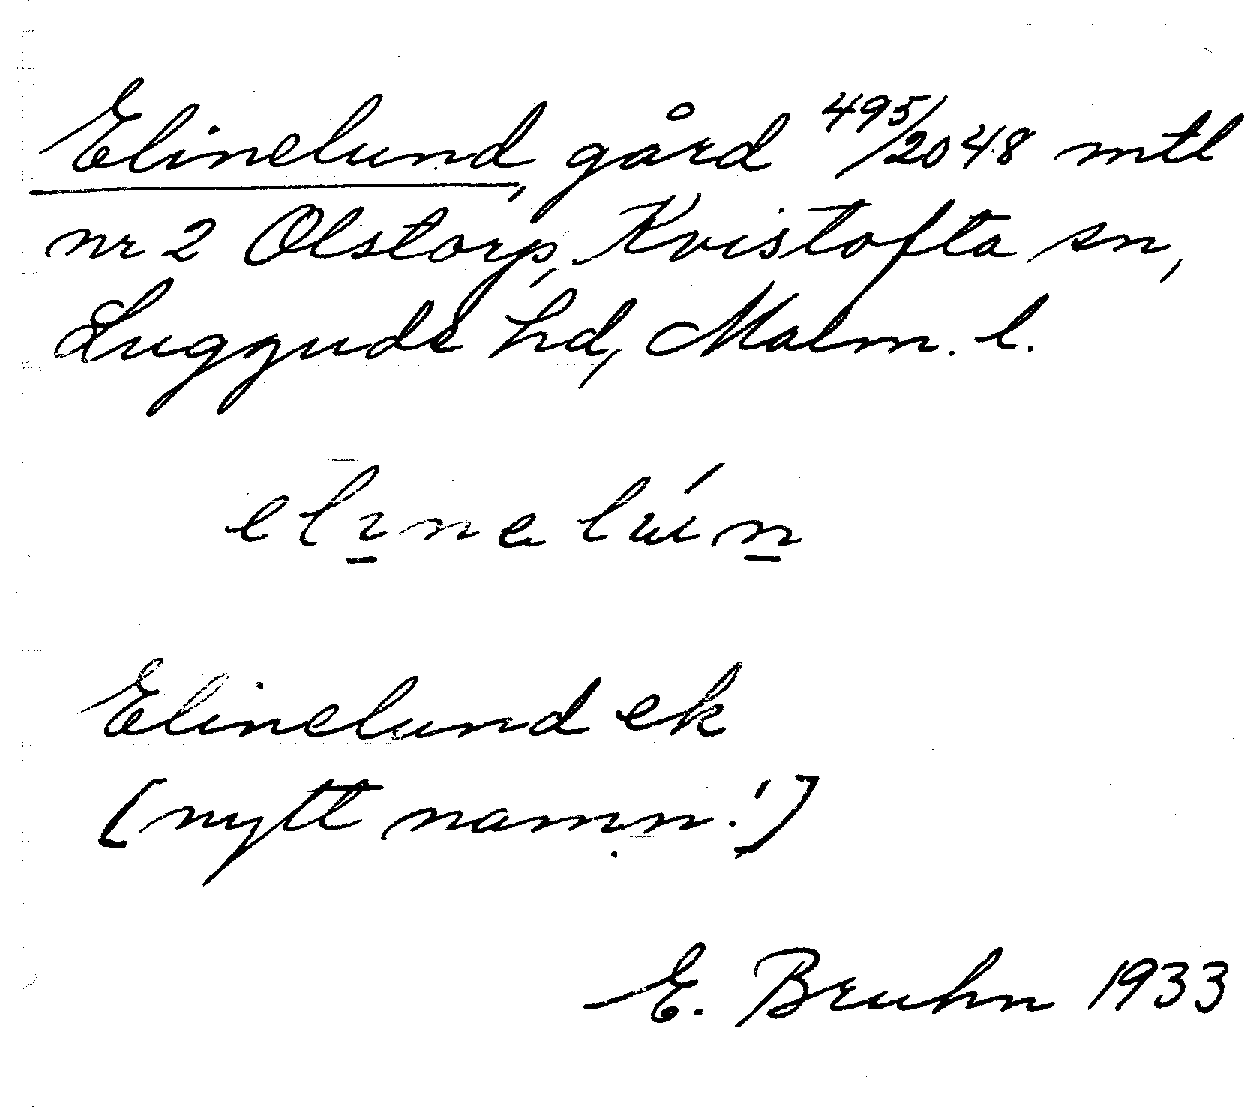 Elinelund, gård 495/2048 mtl
nr 2 Olstorp, Kvistofta sn,
Luggude hd, Malm. l.
elı̱nelúṉ
Elinelund ek
(nytt namn!)
E. Bruhn 1933